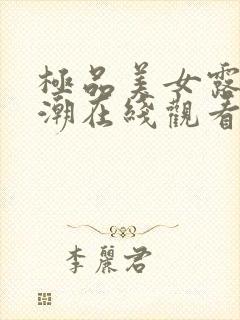 極品美女露
潮在綫觀看
李麗君